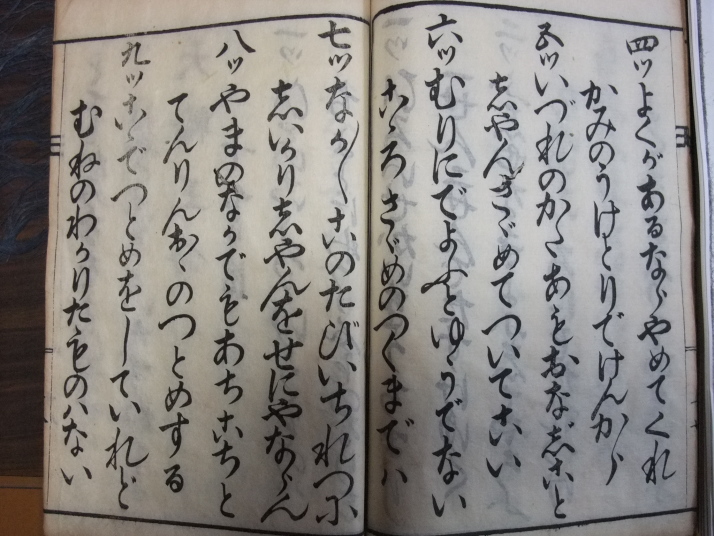 四ッよくがあるならやめてくれ
かみのうけとりでけんから
五ッいづれのかたもおなじこと
しやんさだめてついてこい
六ッむりにでようとゆうでない
こゝろさだめのつくまでハ
七ッなか〳〵このたびいちれつに
しいかりしやんをせにやならん
八ッやまのなかでもあちこちと
てんりんおゝのつとめする
九ッこゝでつとめをしていれど
むねのわかりたものハない